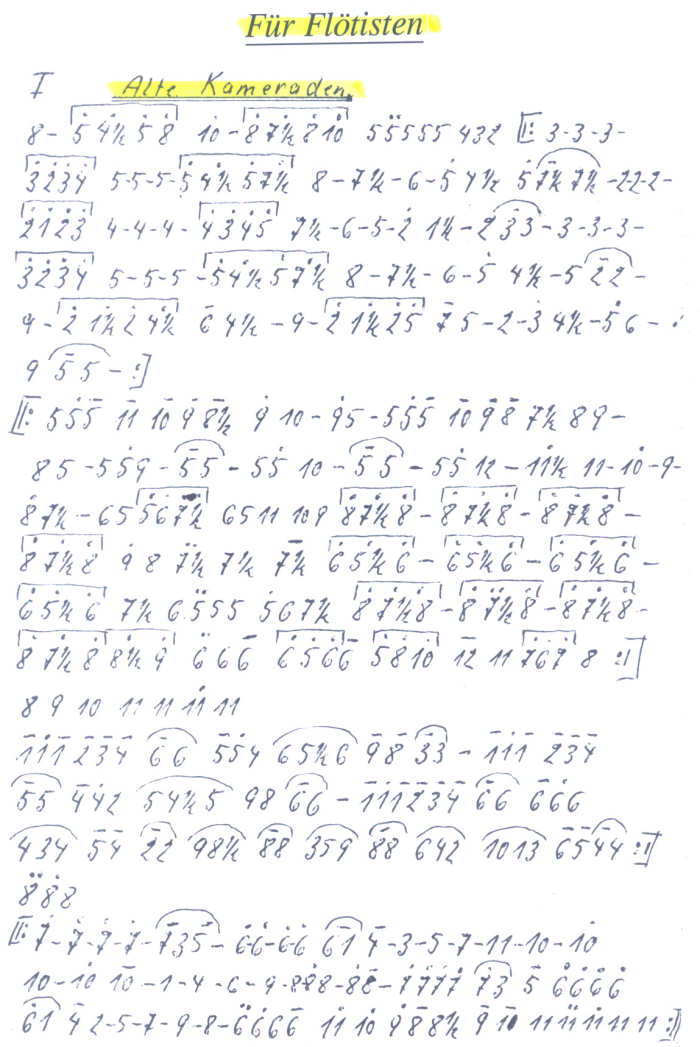 Für Flötisten
I Alte Kameraden.
8 - 5 4½ 5 8 10 - 8 7½ 8 10 5 5 5 5 5 4 3 2 [: 3 - 3 - 3 -
3 2 3 4 5 - 5 - 5 - 5 4½ 5 7½ 8 - 7½ - 6 - 5 4½ 5 7½ 7½ - 2 2 - 2 -
2 1 2 3 4 - 4 - 4 - 4 3 4 5 7½ - 6 - 5 - 2 1½ - 2 3 3 - 3 - 3 - 3 -
3 2 3 4 5 - 5 - 5 - 5 4½ 5 7½ 8 - 7½ - 6 - 5 4½ - 5 2 2 -
9 - 2 1½ 2 4½ 6 4½ - 9 - 2 1½ 2 5 7 5 - 2 - 3 4½ - 5 6 -
9 5 5 - :]
[: 5 5 5 11 10 9 8½ 9 10 - 9 5 - 5 5 5 10 9 8 7½ 8 9 -
8 5 - 5 5 9 - 5 5 - 5 5 10 - 5 5 - 5 5 12 - 11½ 11 - 10 - 9 -
8 7½ - 6 5 5 6 7½ 6 5 11 10 9 8 7½ 8 - 8 7½ 8 - 8 7½ 8 -
8 7½ 8 9 8 7½ 7½ 7½ 6 5½ 6 - 6 5½ 6 - 6 5½ 6 -
6 5½ 6 7½ 6 5 5 5 5 6 7½ 8 7½ 8 - 8 7½ 8 - 8 7½ 8 -
8 7½ 8 8½ 9 6 6 6 6 5 6 6 5 8 10 12 11 7 6 7 8 :]
8 9 10 11 11 11 11
1 1 1 2 3 4 6 6 5 5 4 6 5½ 6 9 8 3 3 - 1 1 1 2 3 4
5 5 4 4 2 5 4½ 5 9 8 6 6 - 1 1 1 2 3 4 6 6 6 6 6
4 3 4 5 4 2 2 9 8½ 8 8 3 5 9 8 8 6 4 2 10 1 3 6 5 4 4 :]
8 8 8
[: 7 - 7 - 7 - 7 - 7 3 5 - 6 6 - 6 6 6 1 4 - 3 - 5 - 7 - 11 - 10 - 10
10 - 10 10 - 1 - 4 - 6 - 9 - 8 8 8 - 8 8 - 7 7 7 7 7 3 5 6 6 6 6
6 1 4 2 - 5 - 7 - 9 - 8 - 6 6 6 6 11 10 9 8 8 8½ 9 10 11 11 11 11 11 :]